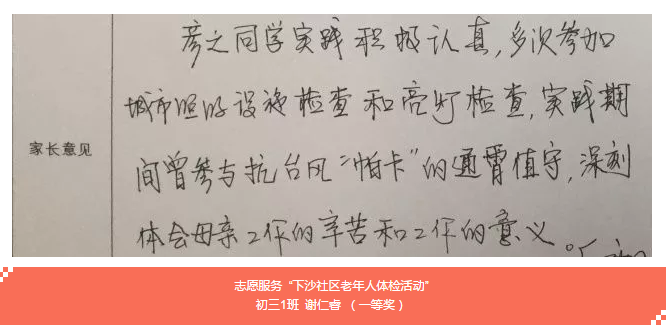 彦之同学实践积极认真,多次参加
城市照明设施检查和亮灯检查,实践期
家长意见
间曾参与抗台风“帕卡”的通霄值守,深刻
体会母亲工作的辛苦和工作的意义。
志愿服务 “下沙社区老年人体检活动”
初三1班 谢仁睿 （一等奖）